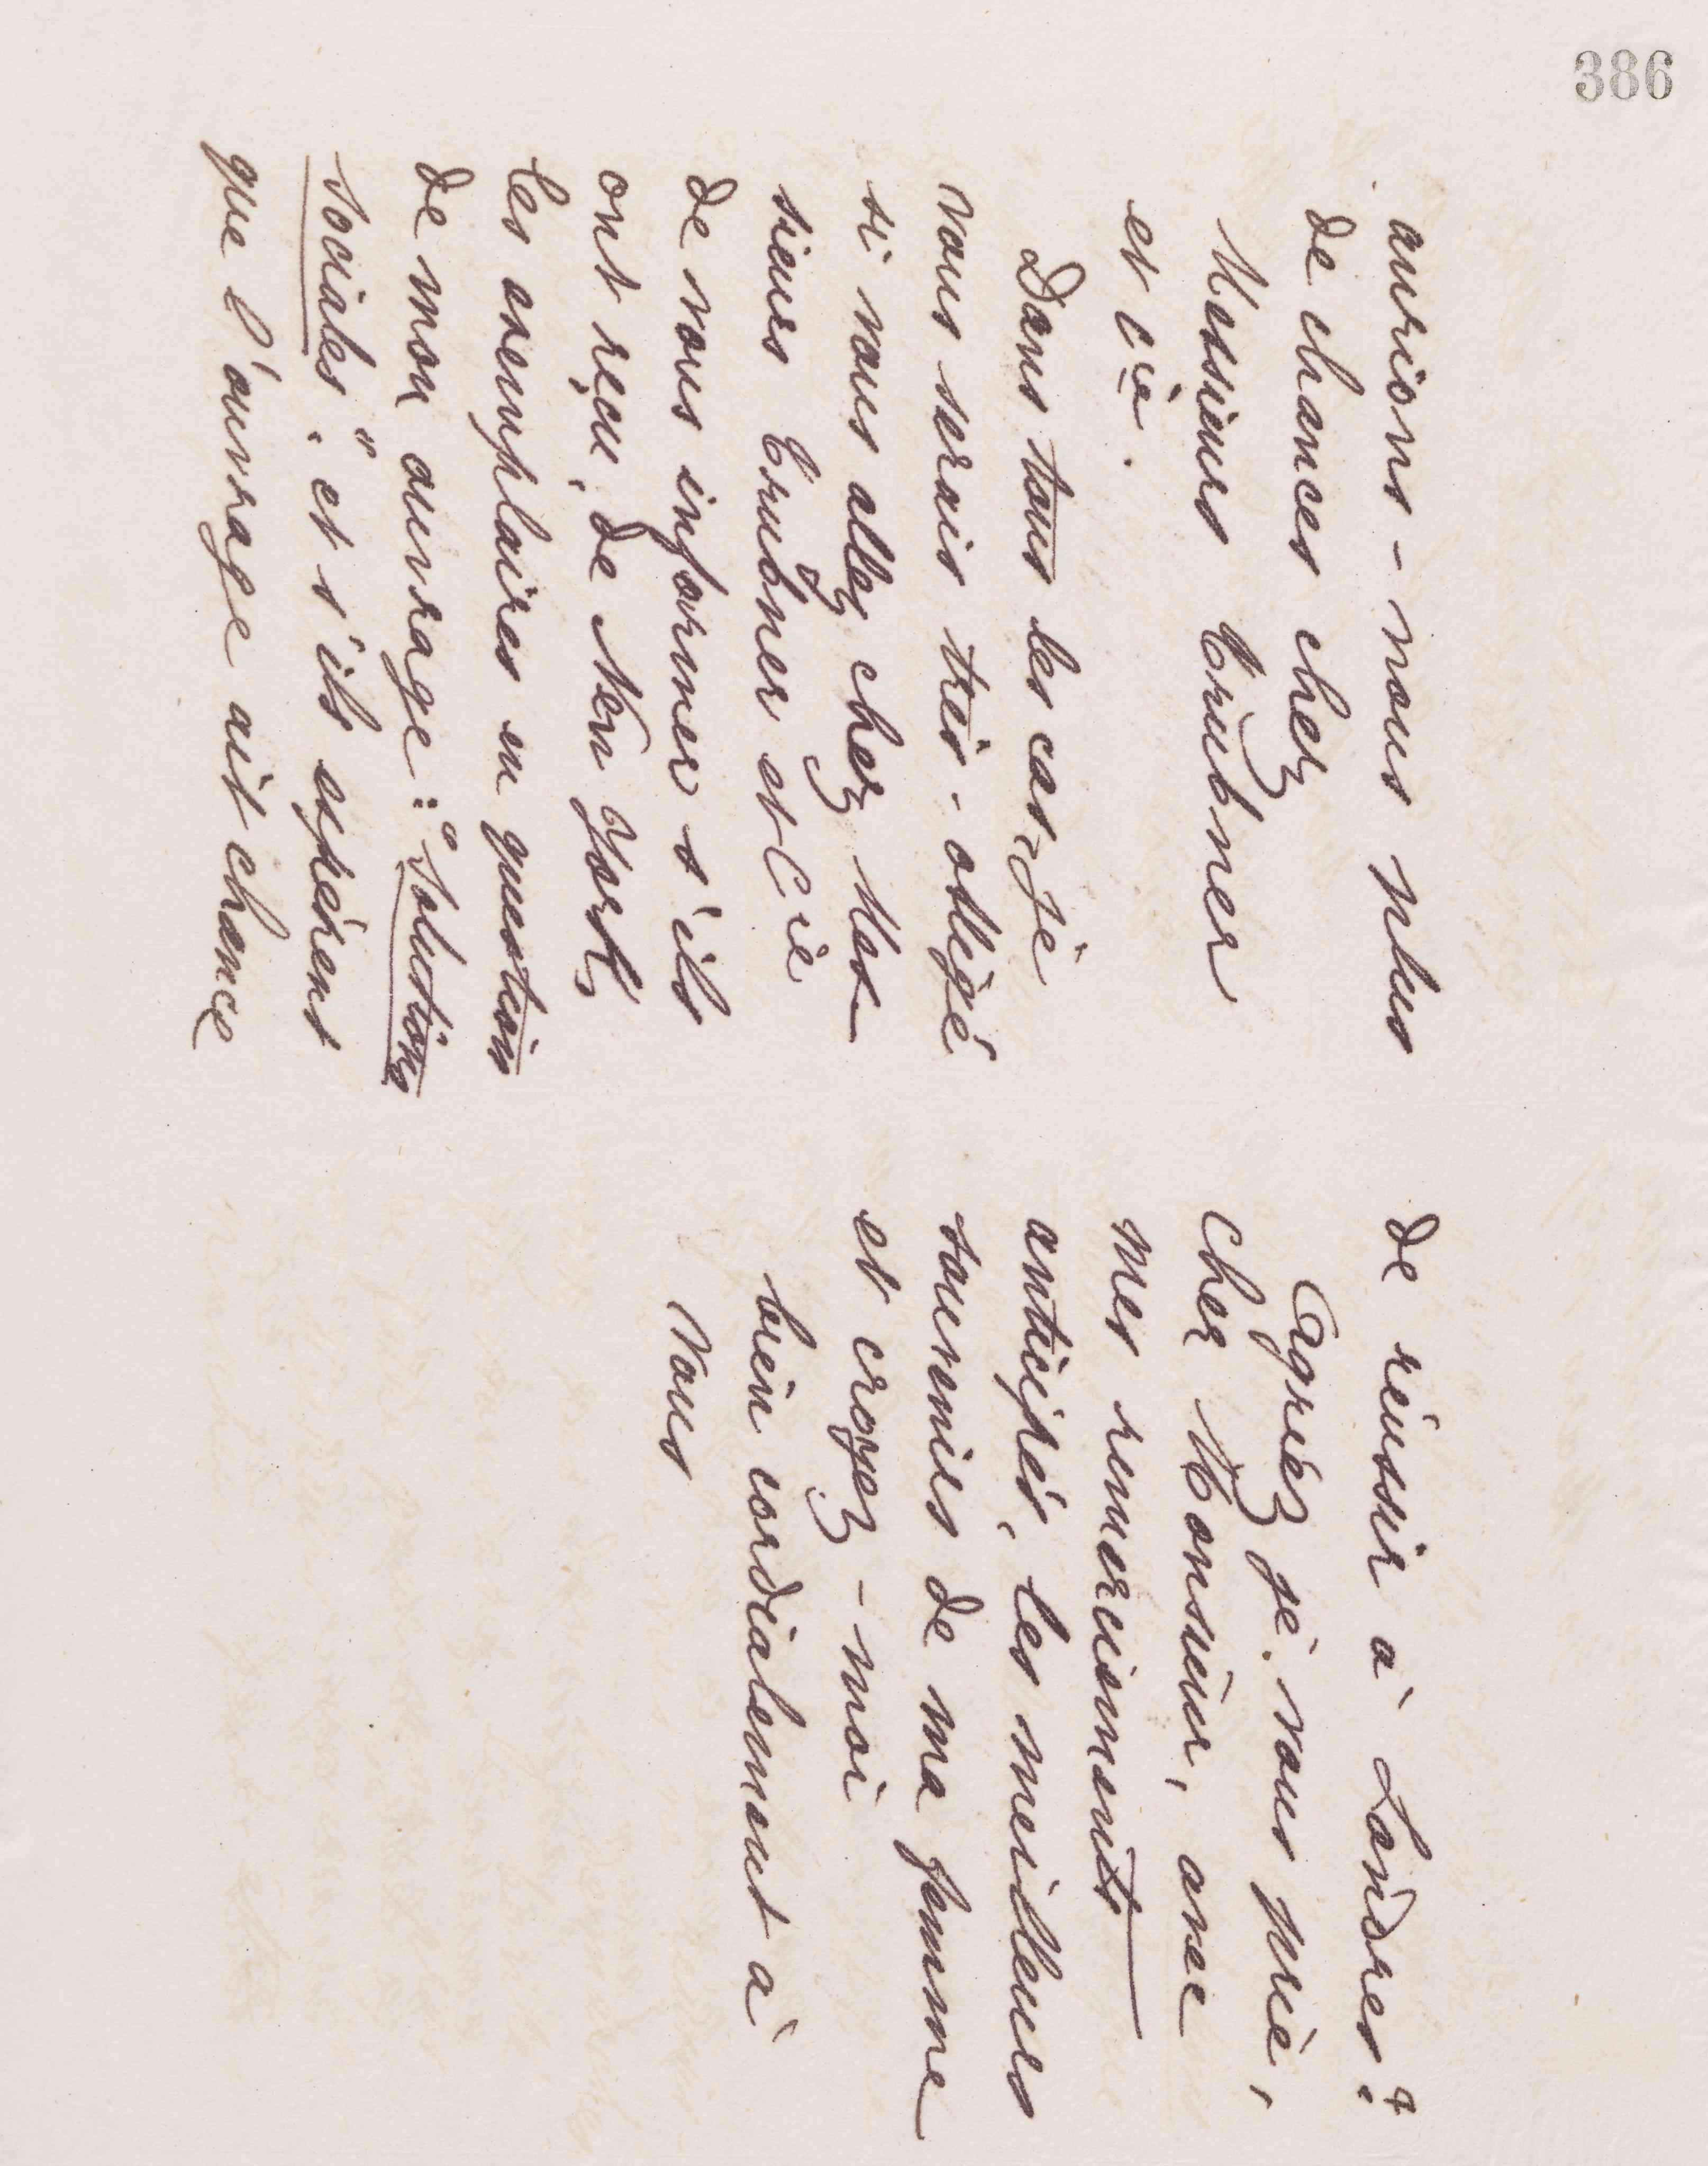 386
aurions-nous plus
de chances chez
Messieurs Trubner
et Cie.
Dans tous les cas, je
vous serais très-obligé
si vous allez chez Mes
sieurs Trubner et Cie
de vous informer s'ils
ont reçu, de New York,
les exemplaires en question
de mon ouvrage: "Solutions
sociales", et s'ils espèrent
que l'ouvrage ait chance
de réussir à Londres?
Agréez je vous prie,
cher Monsieur, avec
mes remerciements
anticipés, les meilleurs
souvenirs de ma femme
et croyez-moi
bien cordialement à
Vous